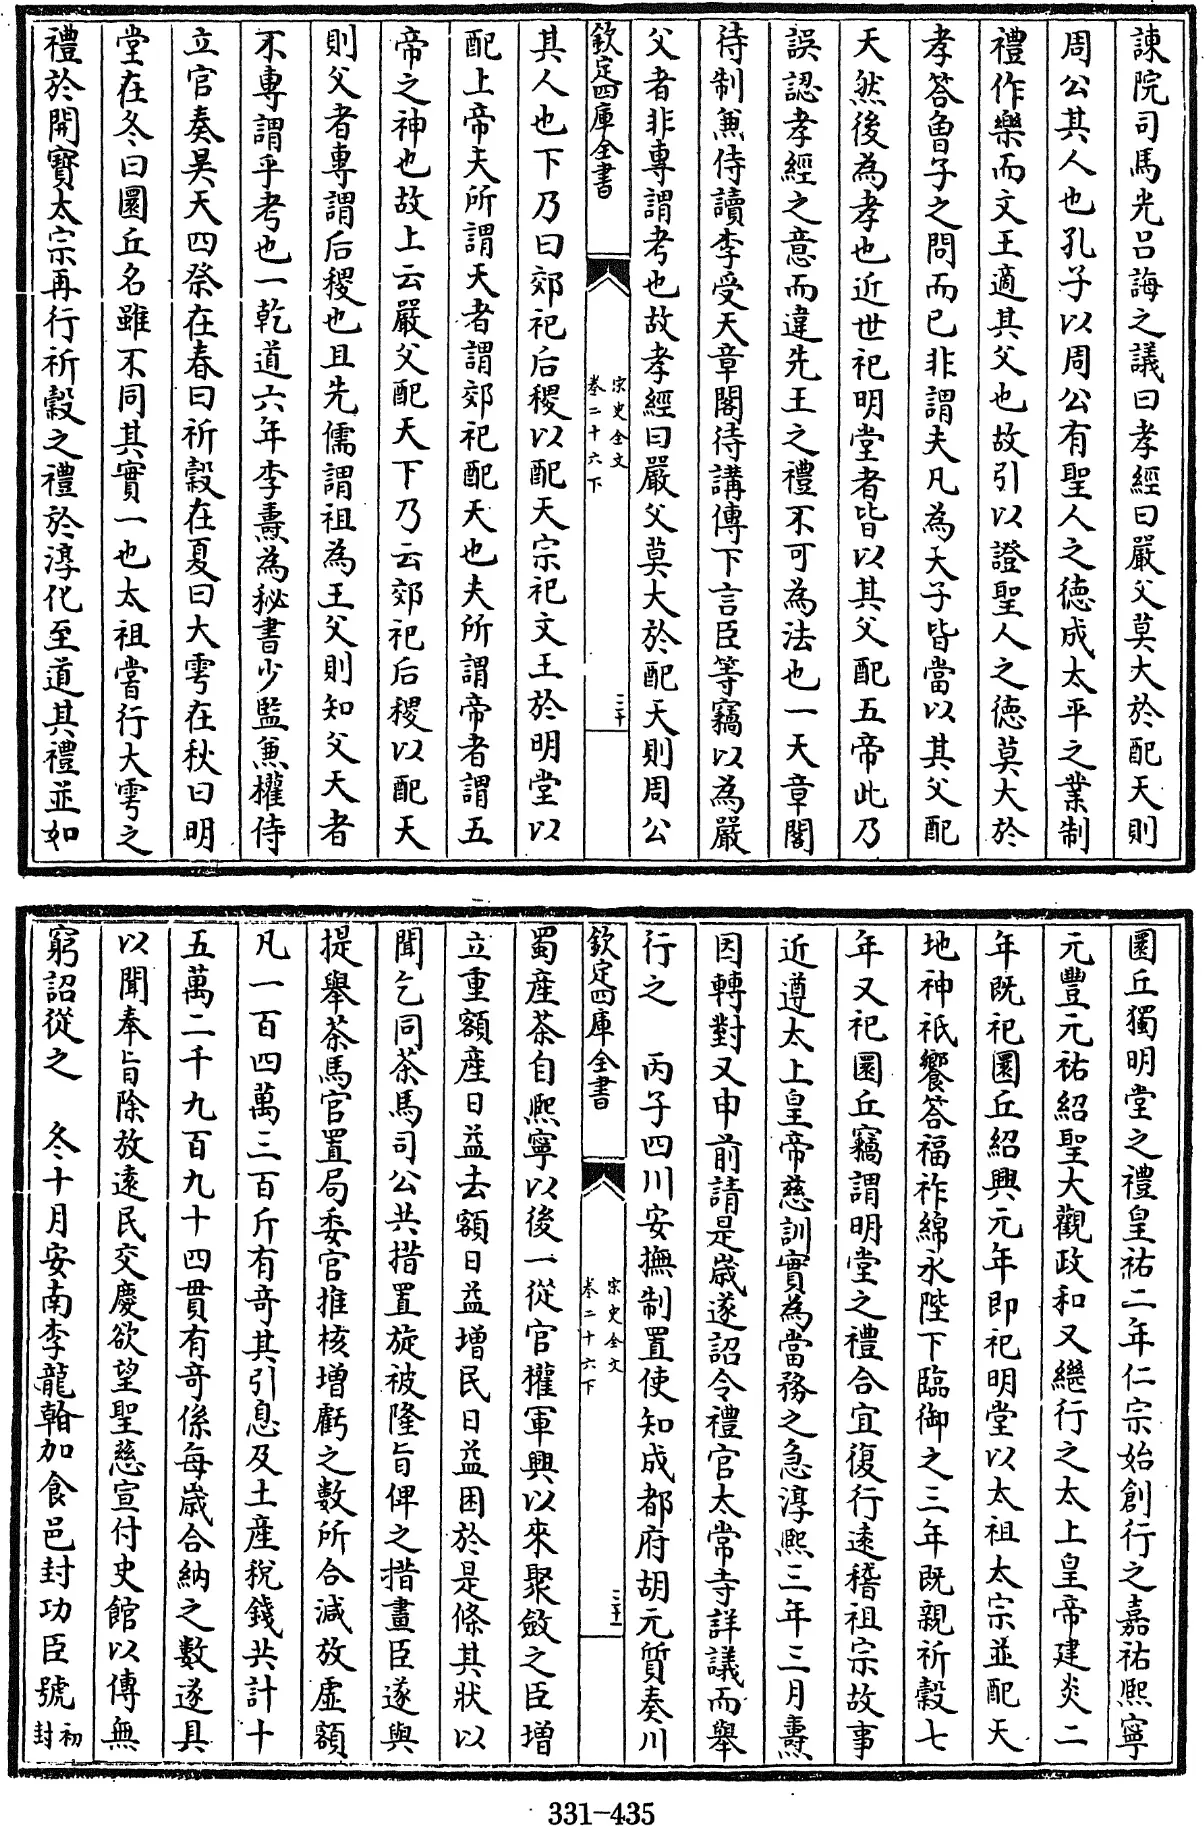 諫院司馬光吕誨之議曰孝經曰嚴父莫大於配天則
周公其人也孔子以周公有聖人之徳成太平之業制
禮作樂而文王適其父也故引以證聖人之徳莫大於
孝答曾子之問而已非謂夫凡為天子皆當以其父配
天然後為孝也近世祀明堂者皆以其父配五帝此乃
誤認孝經之意而違先王之禮不可為法也一天章閣
待制兼侍讀李受天章閣待講傅下言臣等竊以為嚴
父者非專謂考也故孝經曰嚴父莫大於配天則周公
欽定四庫全書
宋史全文
卷二十六下
二十
其人也下乃曰郊祀后稷以配天宗祀文王於明堂以
配上帝夫所謂天者謂郊祀配天也夫所謂帝者謂五
帝之神也故上云嚴父配天下乃云郊祀后稷以配天
則父者專謂后稷也且先儒謂祖為王父則知父天者
不專謂乎考也一乾道六年李燾為秘書少監兼權侍
立官奏昊天四祭在春曰祈穀在夏曰大雩在秋曰明
堂在冬曰圜丘名雖不同其實一也太祖嘗行大雩之
禮於開寶太宗再行祈穀之禮於淳化至道其禮並如
圜丘獨明堂之禮皇祐二年仁宗始創行之嘉祐熈寧
元豐元祐紹聖大觀政和又繼行之太上皇帝建炎二
年既祀圜丘紹興元年即祀明堂以太祖太宗並配天
地神祇饗答福祚綿永陛下臨御之三年既親祈穀七
年又祀圜丘竊謂明堂之禮合宜復行逺稽祖宗故事
近遵太上皇帝慈訓實為當務之急淳熈三年三月燾
因轉對又申前請是嵗遂詔令禮官太常寺詳議而舉
行之　丙子四川安撫制置使知成都府胡元質奏川
欽定四庫全書
宋史全文
卷二十六下
二十一
蜀産茶自熈寧以後一從官㩁軍興以來聚斂之臣增
立重額産日益去額日益增民日益困於是條其狀以
聞乞同茶馬司公共措置旋被隆旨俾之措畫臣遂與
提舉茶馬官置局委官推核增虧之數所合減放虛額
凡一百四萬三百斤有竒其引息及土産稅錢共計十
五萬二千九百九十四貫有竒係每嵗合納之數遂具
以聞奉旨除放逺民交慶欲望聖慈宣付史館以傳無
窮詔從之　冬十月安南李龍𣉙加食邑封功臣號初封
331-435